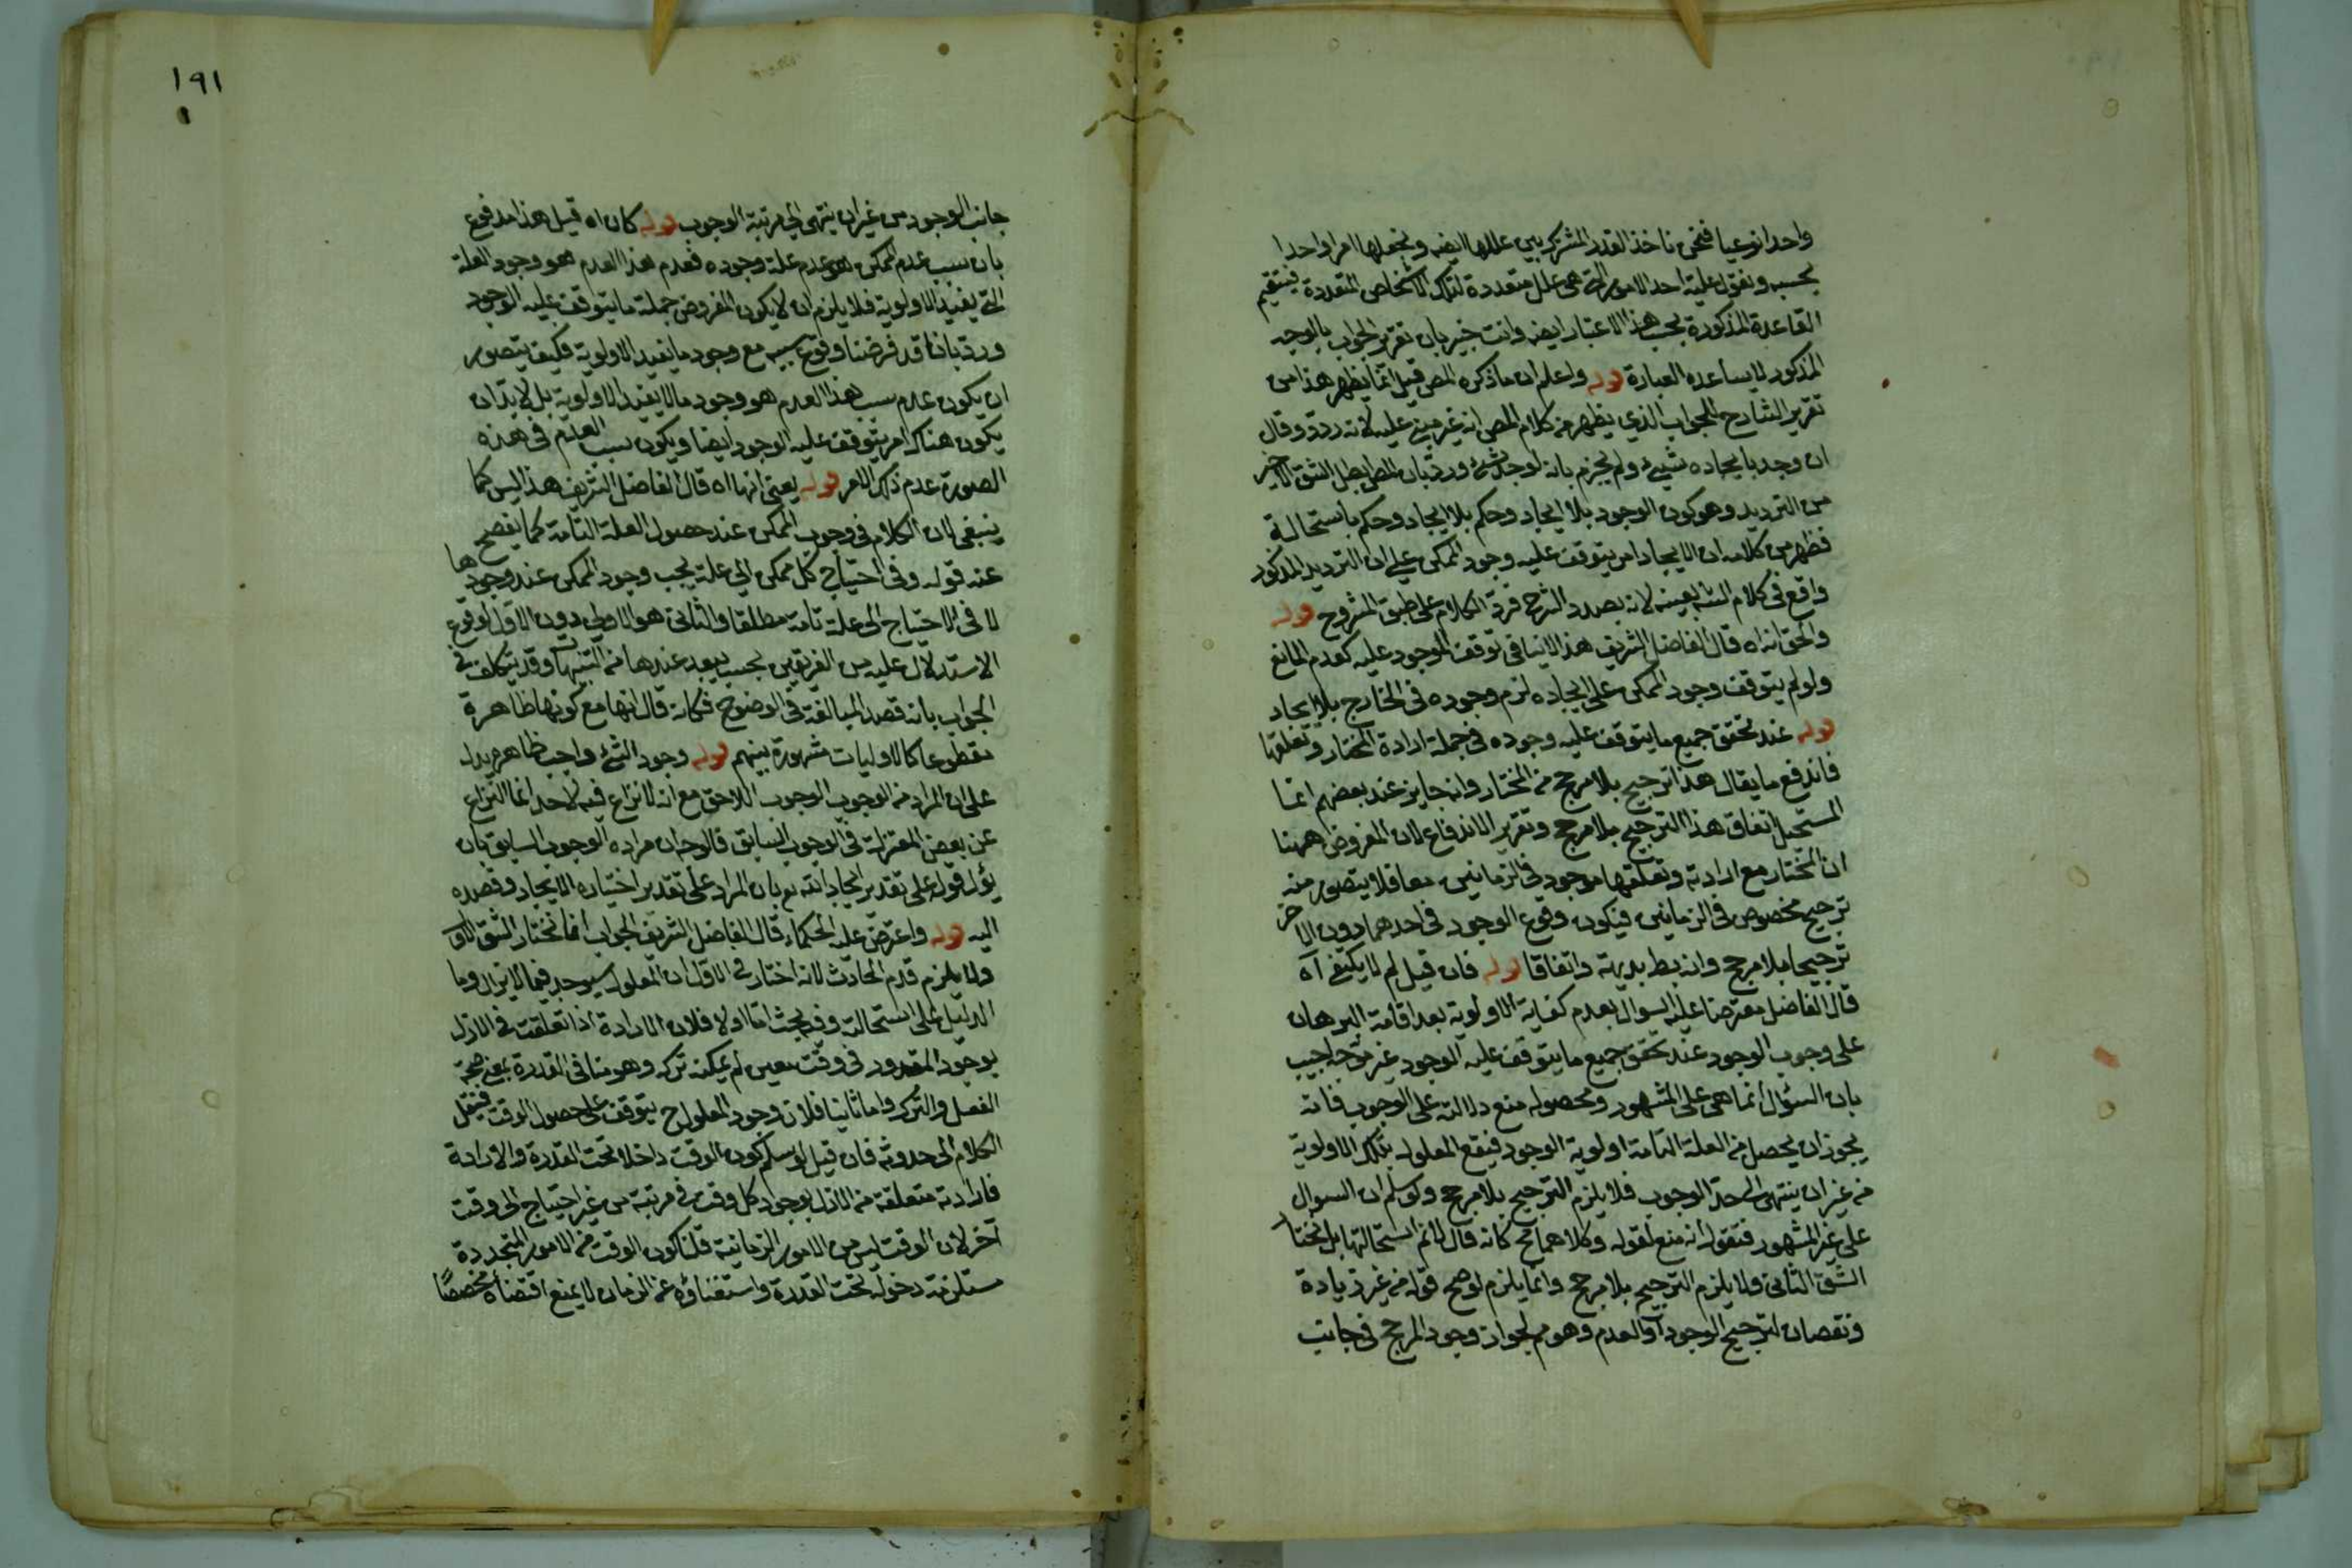 واحدا نوعيا فنحن ناخذ القدر المشترك بين عللها ايضه ونجعلها امرا واحدا
بحسبه ونقول علية احد الامور التي هي علل متعددة لتلك الاشخاص المتعددة فيستقيم
القاعدة المذكورة بحسب هذا الاعتبار ايضه وانت خبير بان تقرير الجواب بالوجه
المذكور لا يساعده العبارة قوله واعلم ان ما ذكره المص قيل انما يظهر هذا من
تقرير الشارح للجواب الذي يظهر من كلام المص انه غير مبني عليه لانه ردد وقال
ان وجد بايجاده شيئ ولم يجزم بانه لوجد شئ ورد بان المط ابطل الشق الاخير
من الترديد وهو كون الوجود بلا ايجاد وحكم بلا ايجاد وحكم باستحالة
فظهر من كلامه ان الايجاد امر يتوقف عليه وجود الممكن على ان الترديد المذكور
واقع في كلام الشه بعينه لانه بصدد الشرح فرد الكلام على طبق المشروح قوله
والحق انه اه قال الفاضل الشريف هذا لا ينافي توقف الموجود عليه كعدم المانع
ولو لم يتوقف وجود الممكن على ايجاده لزم وجوده في الخارج بلا ايجاد
قوله عند تحقق جميع ما يتوقف عليه وجوده في جملة ارادة المختار وتعلقها
فاندفع ما يقال هذا ترجيح بلا مرجح من المختار وانه جايز عند بعضهم انما
المستحيل اتفاق هذا الترجيح بلا مرجح وتقرير الاندفاع لان المفروض ههنا
ان المختار مع ارادته وتعلقها موجود في الزمانين معا فلا يتصور منه
ترجيح مخصوص في الزمانين فيكون وقوع الوجود في احدهما دون الاخر
ترجيحا بلا مرجح وانه بط بديهة واتفاقا قوله فان قيل لم لا يكتفى آه
قال الفاضل معترضا عليه السوال بعدم كفاية الاولوية بعد اقامة البرهان
على وجوب الوجود عند تحقق جميع ما يتوقف عليه الوجود غير موجه اجيب
بان السؤال انما هي على المشهور ومحصوله منع دلالته على الوجوب فانه
يجوز ان يحصل من العلة التامة اولوية الوجود فيقع المعلول بتلك الاولوية
من غير ان ينتهي الى حد الوجوب فلا يلزم الترجيح بلا مرجح ولو سلم ان السوال
على غير المشهور فنقول انه منع لقوله وكلاهما مح كانه قال لانم استحالتها بل نختار
الشق الثاني ولا يلزم الترجيح بلا مرجح وانما يلزم لو صح قوله من غير زيادة
ونقصان لترجيح الوجود او العدم وهو مم لجواز وجود المرجح في جانب
١٩١
جانب الوجود من غير ان ينتهي الى مرتبة الوجوب قوله كان اه قيل هذا مدفوع
بان سبب عدم الممكن هو عدم علة وجوده فعدم هذا العدم هو وجود العلة
التي يفيد الاولوية فلا يلزم ان لا يكون المفروض جملة ما يتوقف عليه الوجود
ورد بانا قد فرضنا وقوع سببه مع وجود ما يفيد الاولوية فكيف يتصور
ان يكون عدم سبب هذا العدم هو وجود مالا يفيد الاولوية بل لا بد ان
يكون هناك امر يتوقف عليه الوجود ايضا ويكون سبب العدم في هذه
الصورة عدم ذلك الامر قوله يعني انها اه قال الفاضل الشريف هذا ليس كما
ينبغي لان الكلام في وجوب الممكن عند حصول العلة التامة كما يفصح
عنه قوله وفي احتياج كل ممكن الى علة يجب وجود الممكن عند وجودها
لا في الاحتياج الى علة تامة مطلقا والثاني هو الاولي دون الاول لوقوع
الاستدلال عليه من الفريقين بحسب يبعد عندها من التنبيهات وقد يتكلف في
الجواب بانه قصد المبالغة في الوضوح فكانه قال انها مع كونها ظاهرة
مقطوعا كالاوليات مشهورة بينهم قوله وجود الشئ واجب ظاهره يدل
على ان المراد من الوجوب الوجوب اللاحق مع انه لا نزاع فيه لاحد انما النزاع
عن بعض المعتزلة في الوجوب السابق فالوجه ان مراده الوجوب السابق بان
يؤل قوله على تقدير ايجاد الله تع بان المراد على تقدير اختياره الايجاد وقصده
اليه قوله واعترض عليه الحكماء قال الفاضل الشريف الجواب انا نختار الشق الاول
ولا يلزم قدم الحادث لانه اختار في الاول ان المعلول سيوجد فيما لا يزال وما
الدليل على استحالته وفيه بحث اما اولا فلان الارادة اذا تعلقت في الازل
بوجود المقدور في وقت معين لم يمكنه تركه وهو منافي القدرة بمعنى صحة
الفعل والترك واما ثانيا فلان وجود المعلول ح يتوقف على حصول الوقت فينقل
الكلام الى حدوثه فان قيل لو سلم كون الوقت داخلا تحت القدرة والارادة
فارادته متعلقة من الازل بوجود كل وقت في مرتبة من غير احتياج الى وقت
آخر لان الوقت ليس من الامور الزمانية قلنا كون الوقت من الامور المتجددة
ستلزمة دخوله تحت القدرة واستغناؤه عن الزمان لا يمنع اقتضاه مخصصًا